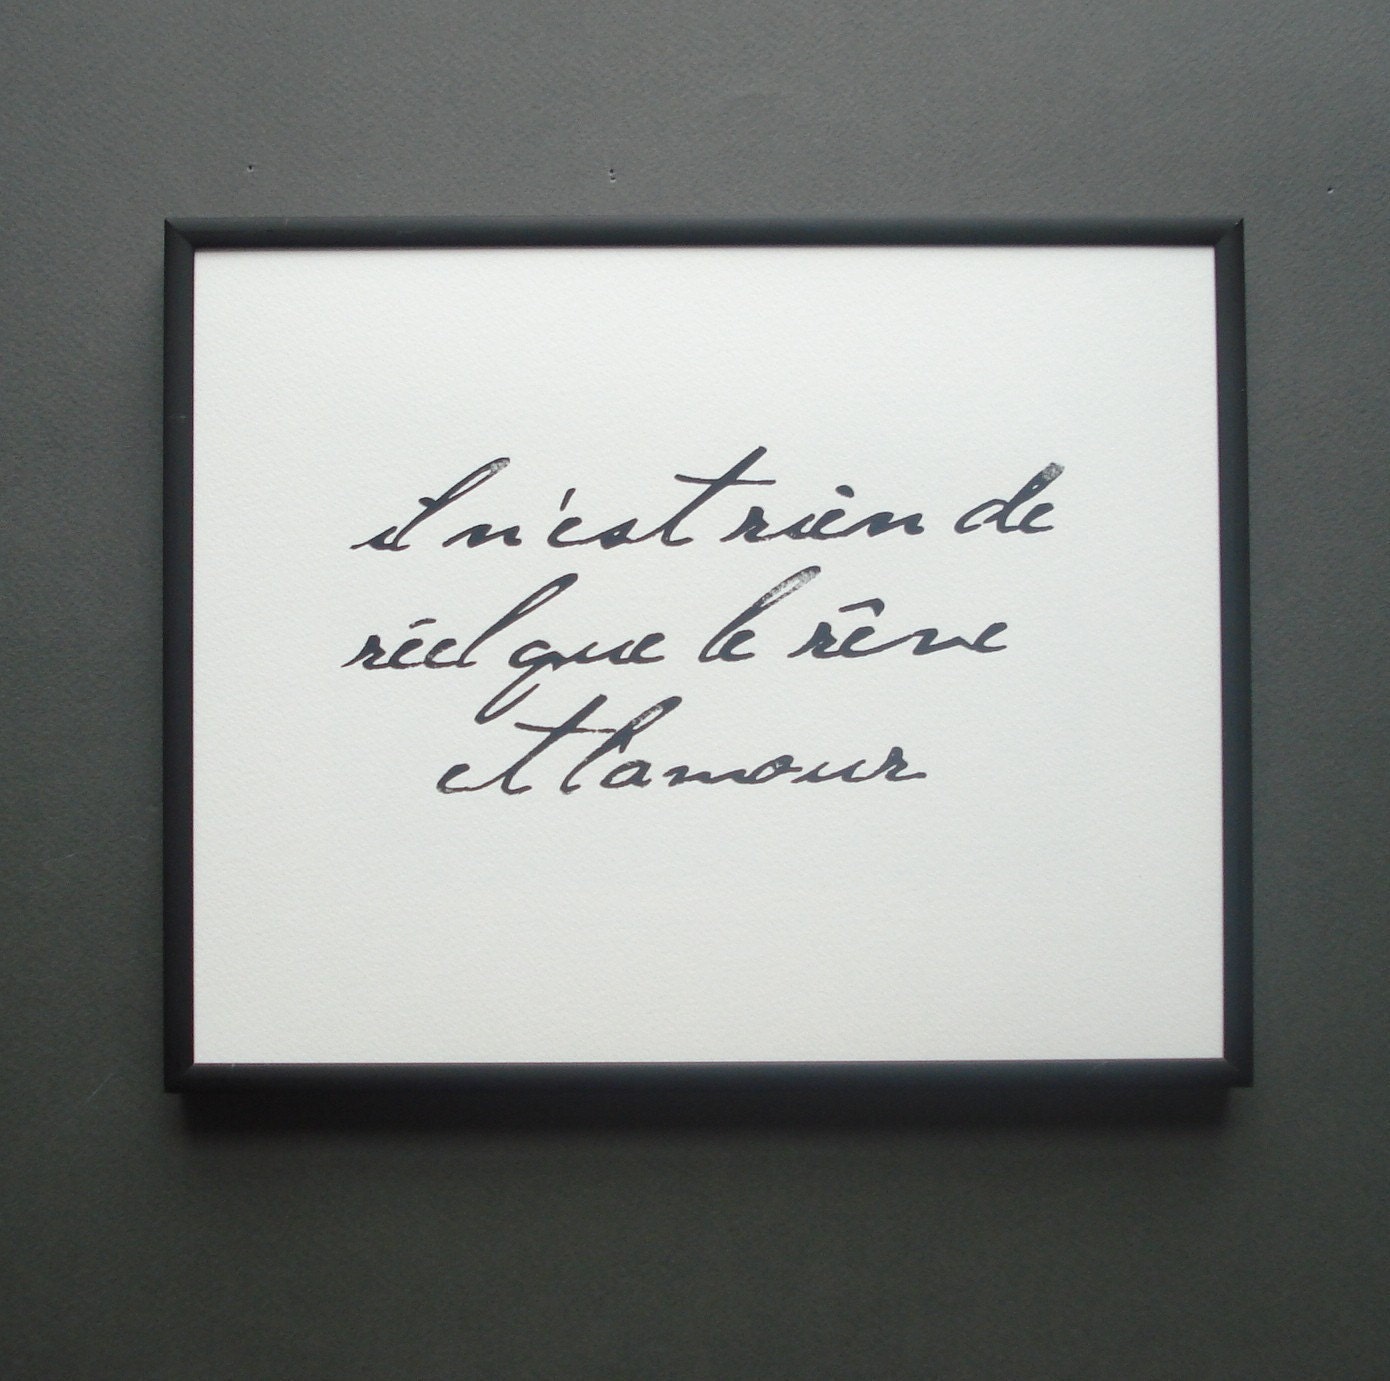 il n'est rien de
réel que le rêve
et l'amour